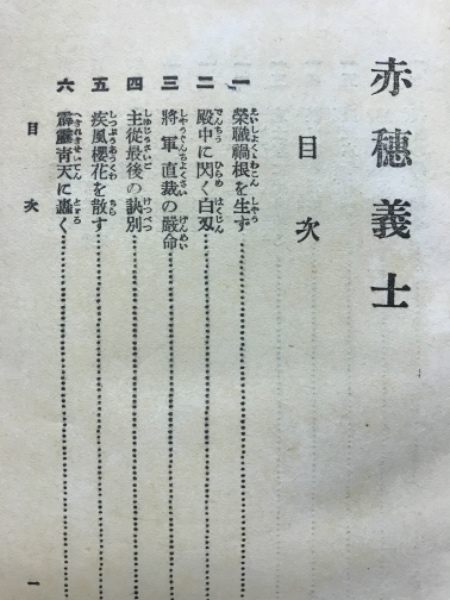 赤穗義士
目次
一 榮職禍根を生ず
二 殿中に閃く白刄
三 將軍直裁の嚴命
四 主從最後の訣別
五 疾風櫻花を散す
六 霹靂靑天に轟く
目次 一